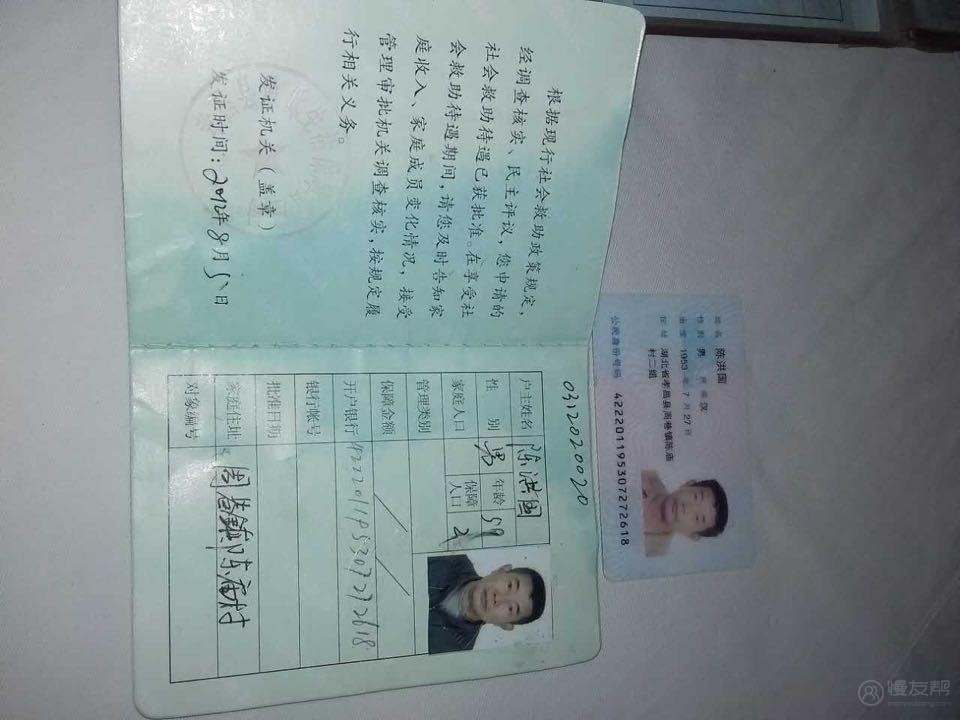 根据现行社会救助政策规定，
经调查核实、民主评议，您申请的
社会救助待遇已获批准。在享受社
会救助待遇期间，请您及时告知家
庭收入、家庭成员变化情况，接受
管理审批机关调查核实，按规定履
行相关义务。
发证机关（盖章）
发证时间：2012年8月 日
0312020020
户主姓名 陈洪国
性别 男 年龄 59
家庭人口 保障人口 2
管理类别
保障金额
开户银行 422201195307272618
银行帐号
批准日期
家庭住址 周巷镇陈庙村
对象编号
姓名 陈洪国
性别 男 民族 汉
出生 1953年7月27日
住址 湖北省孝昌县周巷镇陈庙
村二组
公民身份号码 422201195307272618
慢友帮